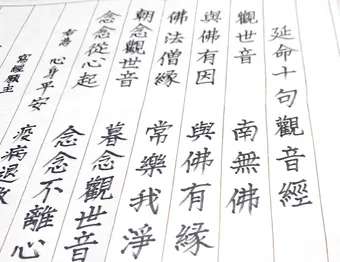 延命十句觀音經
觀世音 南無佛
與佛有因 與佛有緣
佛法僧緣 常樂我淨
朝念觀世音 暮念觀世音
念念從心起 念念不離心
右為 心身平安 疫病退散
寫經願主